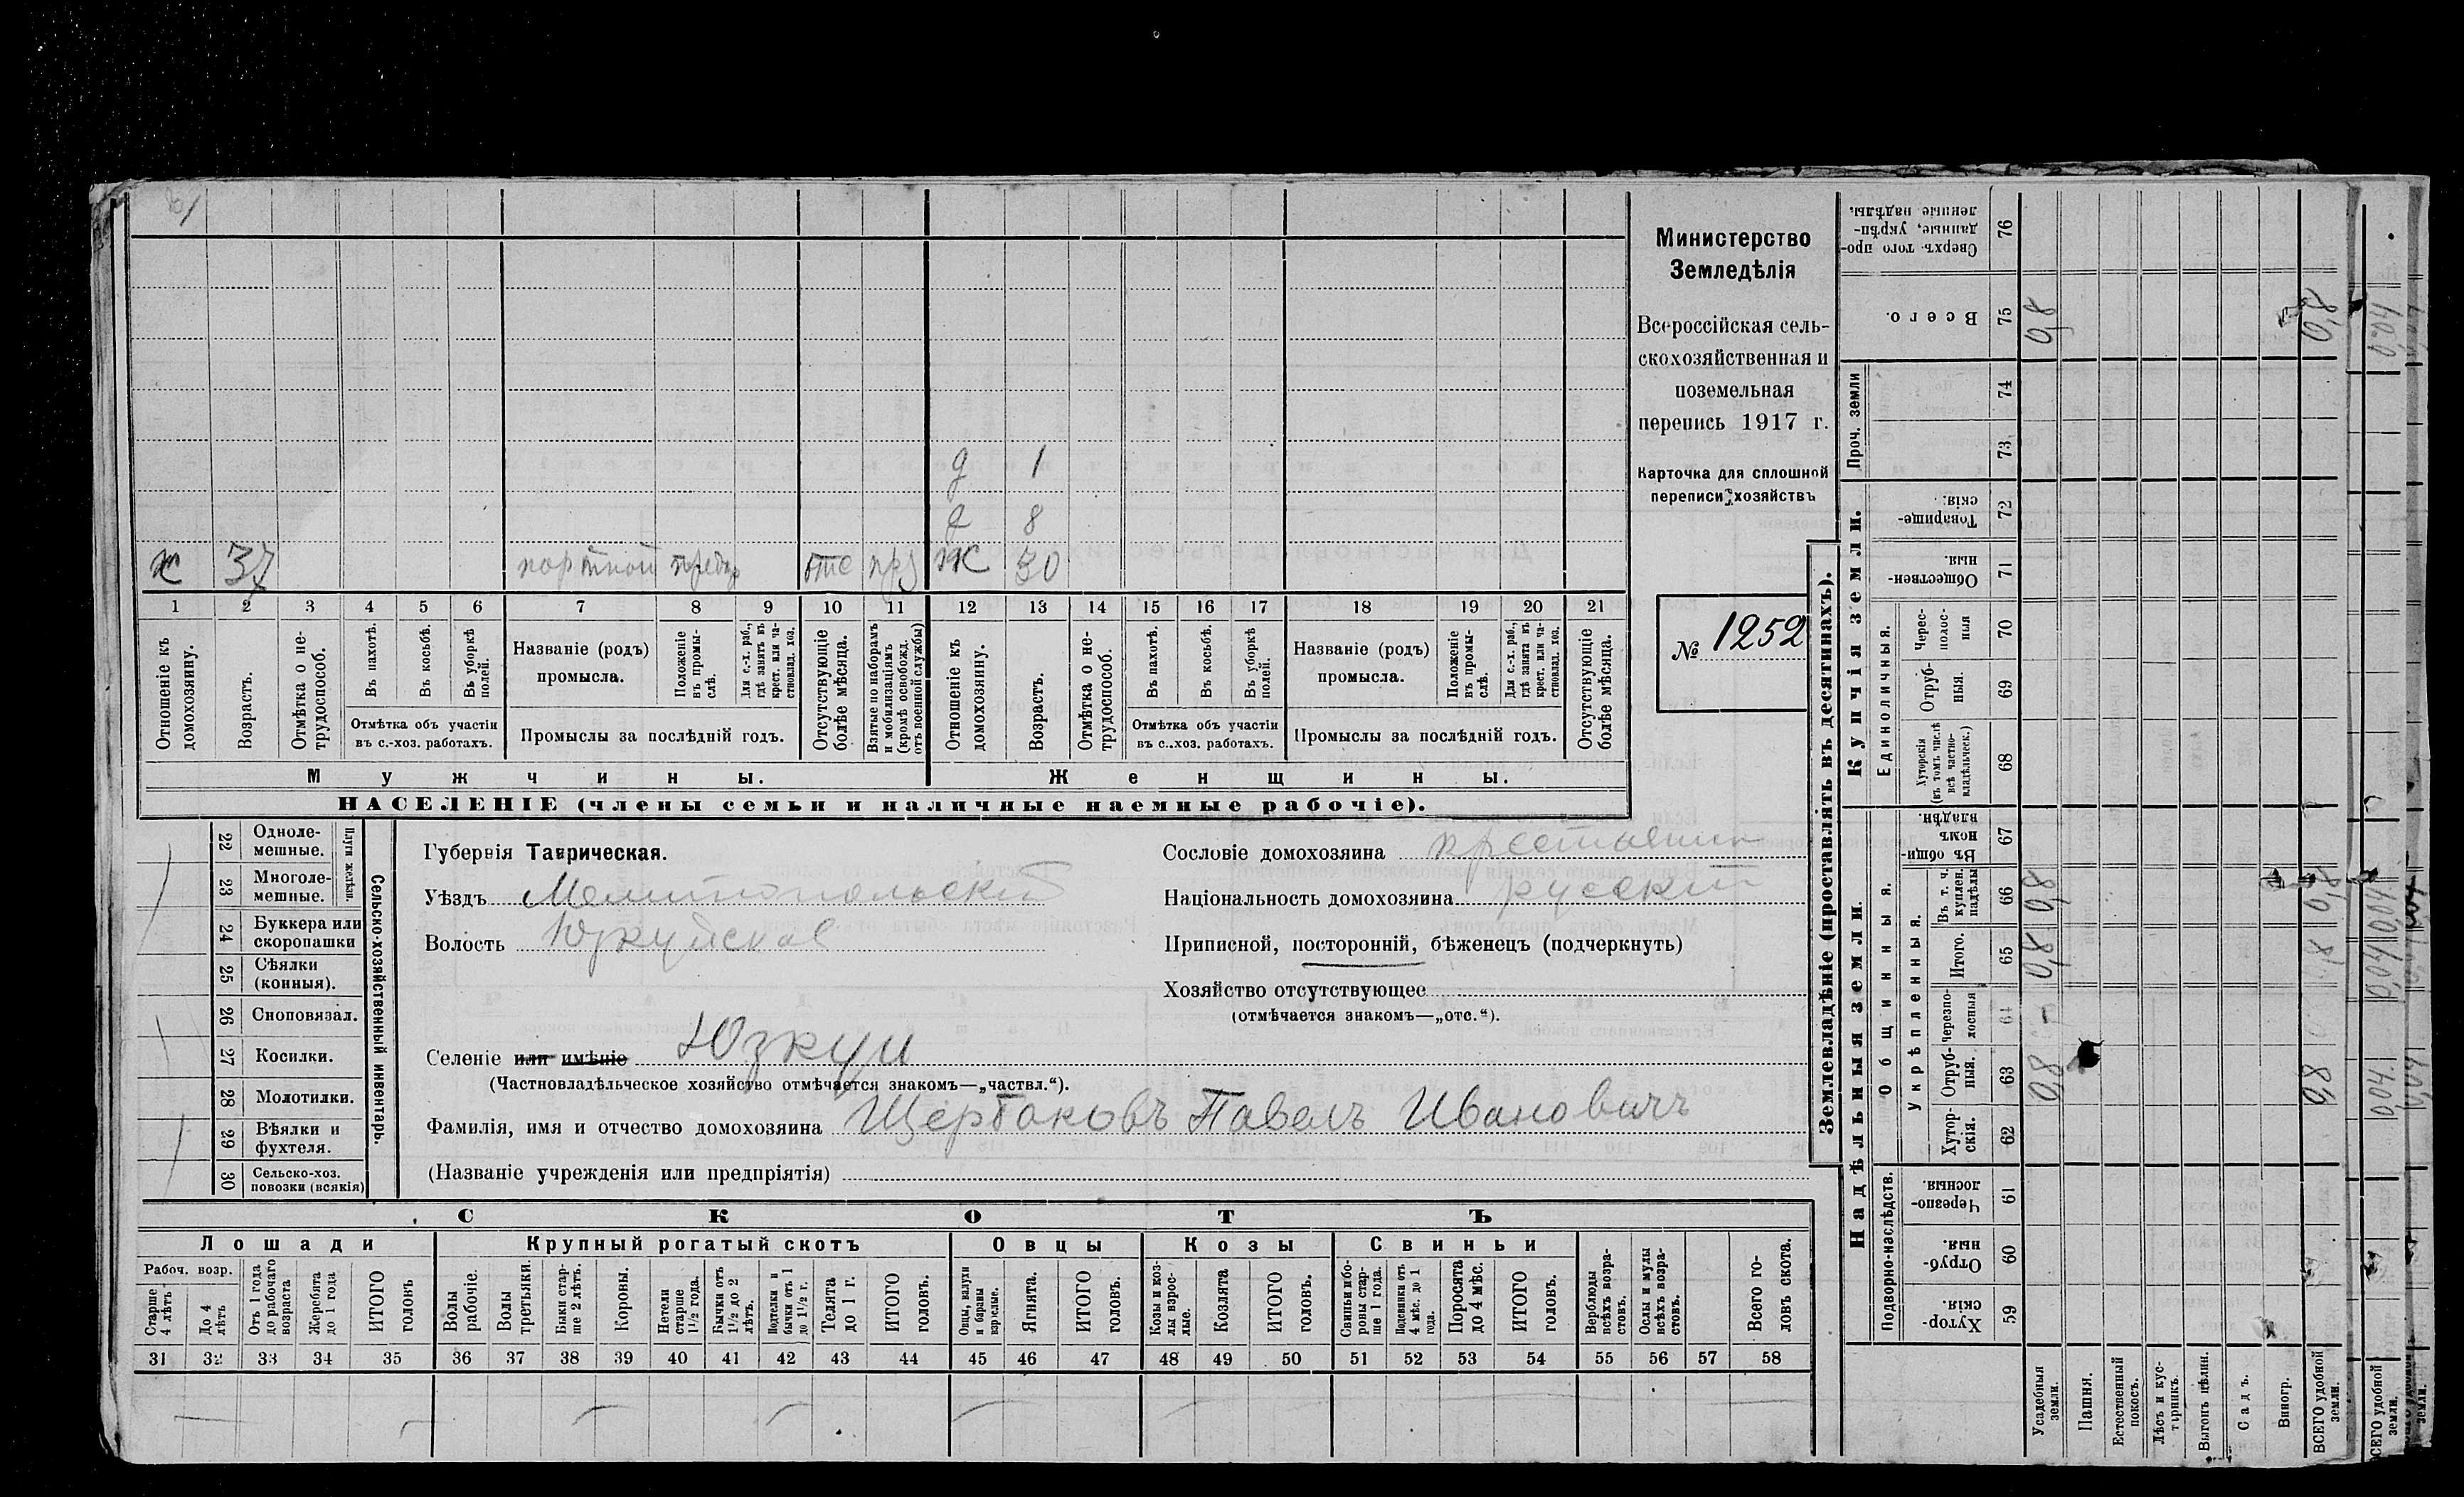 Министерство
Земледѣлія
Всероссійская сель-
скохозяйственная и
поземельная
перепись 1917 г.
Карточка для сплошной
переписи хозяйствъ
№ 1252
д 1
д 8
х 37 портной отс Ж 30
1 2 3 4 5 6 7 8 9 10 11 12 13 14 15 16 17 18 19 20 21
Отношеніе къ домохозяину.
Возрастъ.
Отмѣтка о не-трудоспособ.
Въ пахотѣ.
Въ косьбѣ.
Въ уборкѣ полей.
Отмѣтка объ участіи
въ с.-хоз. работахъ.
Названіе (родъ)
промысла.
Положеніе въ промы-слѣ.
Для с.-х. раб., гдѣ занятъ въ крест. или ча-стновлад. хоз.
Промыслы за послѣдній годъ.
Отсутствующіе болѣе мѣсяца.
Взятые по наборамъ и мобилизаціямъ (кромѣ освобожд. отъ военной службы)
Отношеніе къ домохозяину.
Возрастъ.
Отмѣтка о не-трудоспособ.
Въ пахотѣ.
Въ косьбѣ.
Въ уборкѣ полей.
Отмѣтка объ участіи
въ с..хоз. работахъ.
Названіе (родъ)
промысла.
Положеніе въ промы-слѣ.
Для с.-х. раб., гдѣ занята въ крест. или ча-стновлад. хоз.
Промыслы за послѣдній годъ.
Отсутствующіе болѣе мѣсяца.
Мужчины.
Женщины.
НАСЕЛЕНІЕ (члены семьи и наличные наемные рабочіе).
22 Одноле-мешные.
23 Многоле-мешные.
Плуги желѣзн.
24 Буккера или скоропашки
25 Сѣялки (конныя).
26 Сноповязал.
27 Косилки.
28 Молотилки.
29 Вѣялки и фухтеля.
30 Сельско-хоз. повозки (всякія)
Сельско-хозяйственный инвентарь.
Губернія Таврическая.
Уѣздъ Мелитопольскій
Волость Юзкуйская
Селеніе или имѣніе Юзкуи
(Частновладѣльческое хозяйство отмѣчается знакомъ—„частвл.“).
Фамилія, имя и отчество домохозяина Щербаковъ Павелъ Ивановичъ
(Названіе учрежденія или предпріятія)
Сословіе домохозяина крестьянин
Національность домохозяина русскій
Приписной, посторонній, бѣженецъ (подчеркнуть)
Хозяйство отсутствующее
(отмѣчается знакомъ—„отс.“).
СКОТЪ
Лошади
Крупный рогатый скотъ
Овцы
Козы
Свиньи
Рабоч. возр.
Старше 4 лѣтъ
До 4 лѣтъ
Отъ 1 года до рабочаго возраста
Жеребята до 1 года
ИТОГО головъ
Волы рабочіе.
Волы третьяки.
Быки стар-ше 2 лѣтъ.
Коровы.
Нетели старше 1½ года.
Бычки отъ 1½ до 2 лѣтъ.
Подтелки и бычки отъ 1 до 1½ г.
Телята до 1 г.
ИТОГО головъ.
Овцы, валухи и бараны взрослые.
Ягнята.
ИТОГО головъ.
Козы и коз-лы взрос-лые.
Козлята
ИТОГО головъ.
Свиньи и бо-ровы стар-ше 1 года.
Подсвинки отъ 4 мѣс. до 1 года.
Поросята до 4 мѣс.
ИТОГО головъ.
Верблюды всѣхъ возра-стовъ.
Ослы и мулы всѣхъ возра-стовъ.
Всего го-ловъ скота.
31 32 33 34 35 36 37 38 39 40 41 42 43 44 45 46 47 48 49 50 51 52 53 54 55 56 57 58
Землевладѣніе (проставлять въ десятинахъ).
Надѣльныя земли.
Купчія земли.
Проч. земли
Подворно-наслѣдств.
Общинныя.
Укрѣпленныя.
Единоличныя.
Хутор-скія. 59
Отруб-ныя. 60
Черезпо-лосныя. 61
Хутор-скія. 62
Отруб-ныя. 63
Черезпо-лосныя 64
Итого. 65
Въ т. ч. куплен. надѣлы 66
Въ общин-номъ владѣн. 67
Хуторскія (въ томъ числѣ всѣ частно-владѣльческ.) 68
Отруб-ныя. 69
Черес-полос-ныя 70
Обществен-ныя 71
Товарище-скія. 72
73
74
Всего. 75
Сверхъ того про-данные, укрѣп-ленные надѣлы. 76
Усадебныя земли. 0,8 - 0,8 0,8 0,8
Пашня.
Естественный покосъ.
Лѣсъ и кус-тарникъ.
Выгонъ цѣлин.
Садъ.
Виногр.
ВСЕГО удобной земли. 0,8 0,8 0,8
0,04 0,04 0,04 0,04